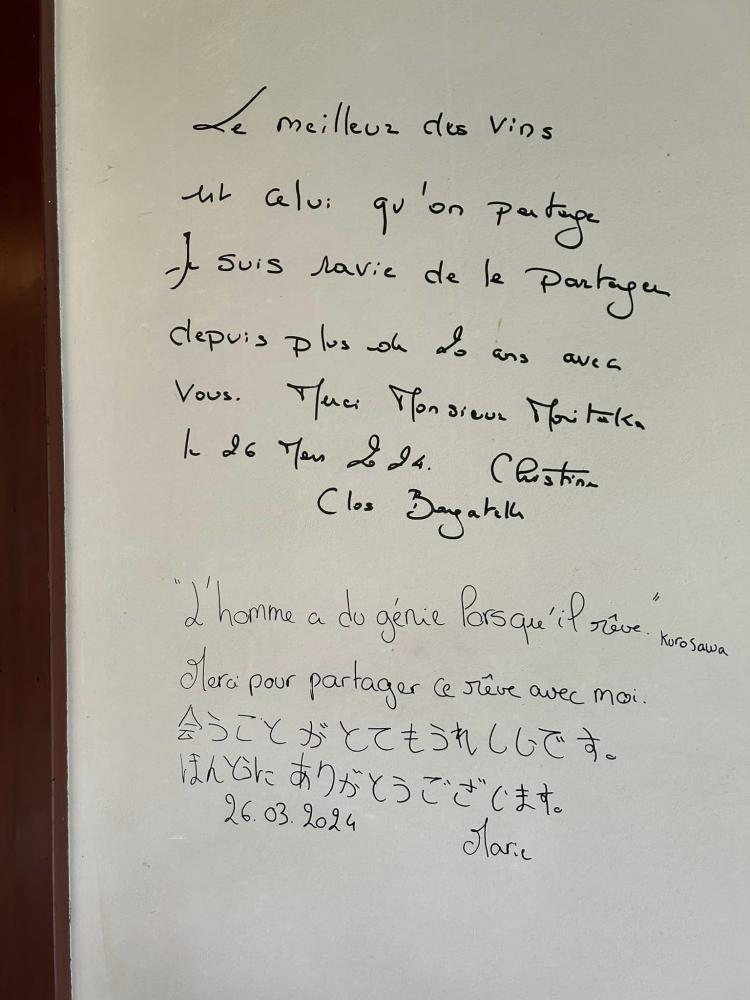 Le meilleur des vins
est celui qu'on partage
Je suis ravie de le partager
depuis plus de 20 ans avec
Vous. Merci Monsieur Moritaka
le 26 Mars 2024. Christine
Clos Bagatelle
"L'homme a du génie lorsqu'il rêve." Kurosawa
Merci pour partager ce rêve avec moi.
会うことがとてもうれしいです。
ほんとうに ありがとうございます。
26.03.2024
Marie